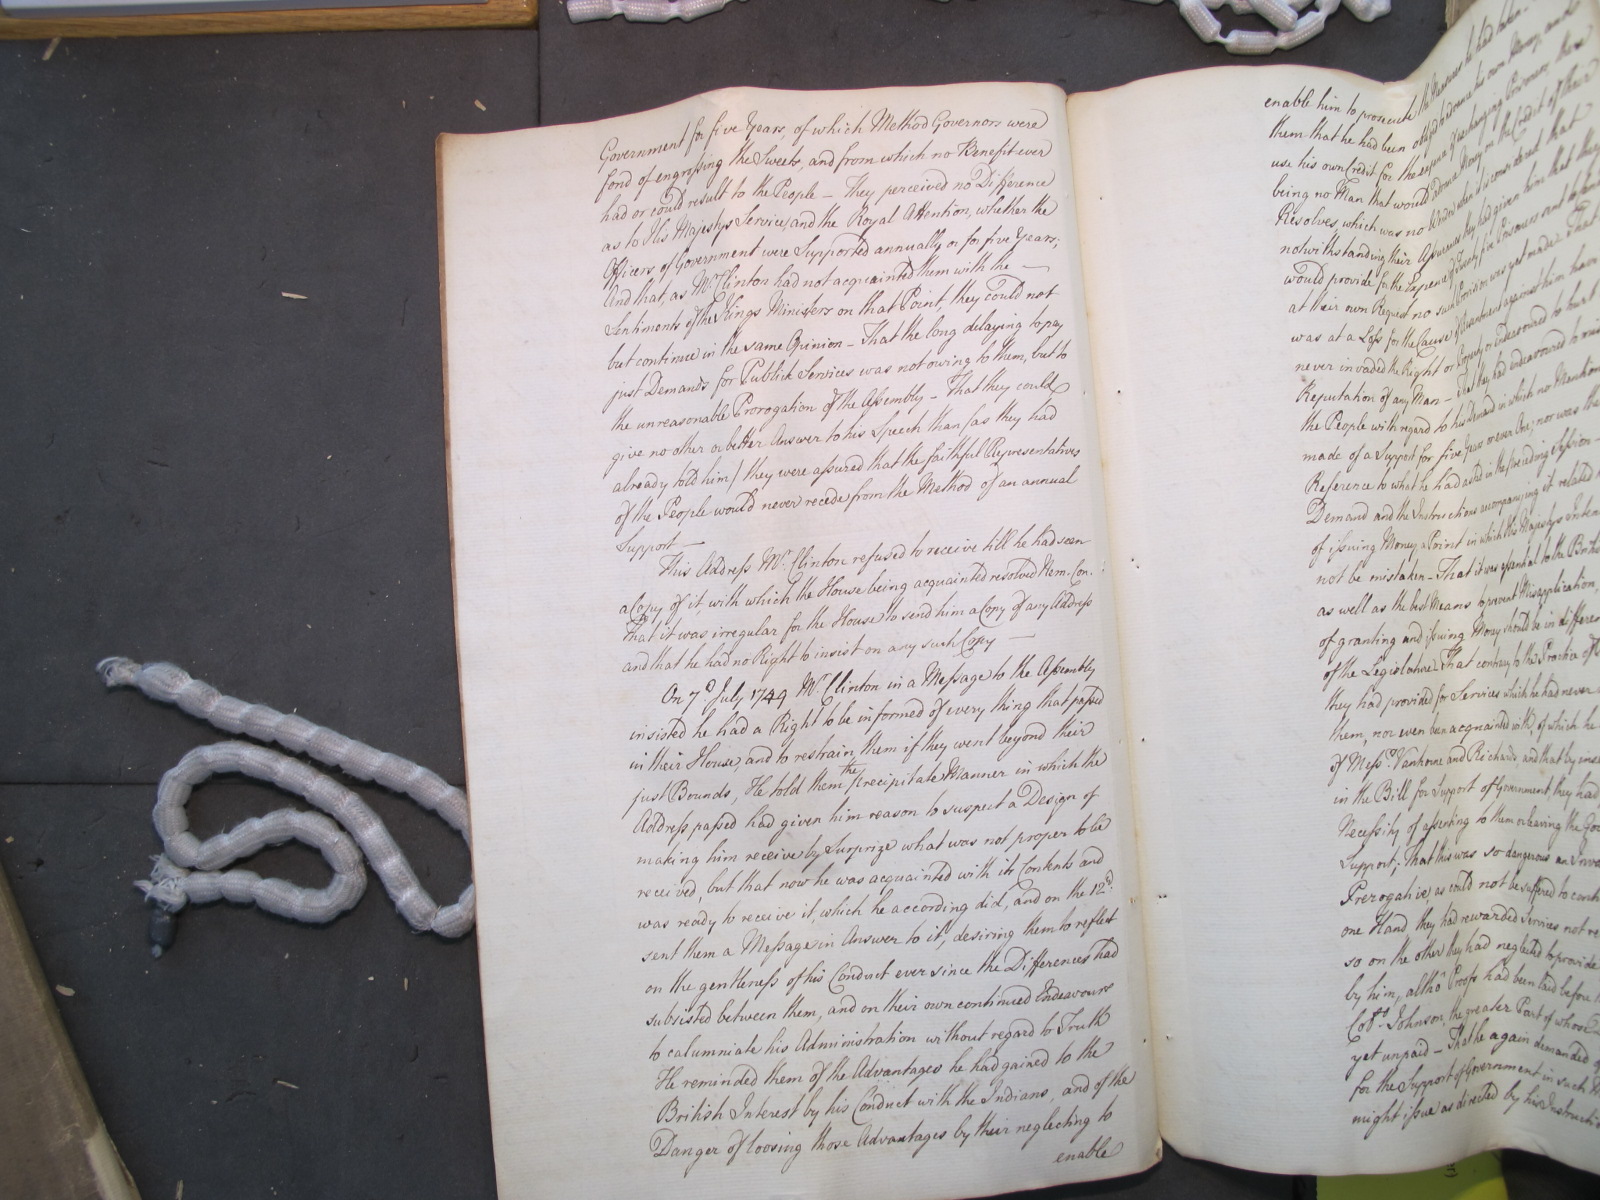 Government for five Years, of which Method Governors were
fond of engrossing the Sweets, and from which no Benefit ever
had or could result to the People – they perceived no Difference
as to His Majestys Service, and the Royal Attention, whether the
Officers of Government were Supported annually or for five Years;
And that, as Mr. Clinton had not acquainted them with the —
Sentiments of the Kings Ministers on that Point, they could not
but continue in the same Opinion – That the long delaying to pay
just Demands for Publick Services was not owing to them, but to
the unreasonable Prorogation of the Assembly – That they could
give no other or better Answer to his Speech than (as they had
already told him) they were assured that the faithful Representatives
of the People would never recede from the Method of an annual
Support —
This Address Mr. Clinton refused to receive till he had seen
a Copy of it, with which the House being acquainted resolved Nem. Con.
That it was irregular for the House to send him a Copy of any Address
and that he had no Right to insist on any such Copy —
On 7th July 1749 Mr. Clinton in a Message to the Assembly
insisted he had a Right to be informed of every thing that passed
in their House, and to restrain them if they went beyond their
just Bounds, He told them the precipitate Manner in which the
Address passed had given him reason to suspect a Design of
making him receive by Surprize what was not proper to be
received, but that now he was acquainted with its Contents and
was ready to receive it, which he according did, and on the 12th.
sent them a Message in Answer to it, desiring them to reflect
on the gentleness of his Conduct ever since the Differences had
subsisted between them, and on their own continued Endeavours
to calumniate his Administration without regard to Truth
He reminded them of the Advantages he had gained to the
British Interest by his Conduct with the Indians, and of the
Danger of loosing those Advantages by their neglecting to
enable
enable him to prosecute the Measures he had taken
them that he had been obliged to advance his own Money, and
use his own Credit for the expence of exchanging Prisoners, there
being no Man that would advance Money on the Credit of their
Resolves, which was no Wonder when it is considered that
notwithstanding their Assurances they had given him that they
would provide for the Expence of Twenty five Prisoners sent
at their own Request no such Provision was yet made. That
was at a Loss for the Cause of Resentment against him have
never invaded the Right or Property or Endeavoured to hurt
Reputation of any Man – That they had endeavoured to
the People with regard to his Demand in which no Mention
made of a Support for five Years or ever One; nor was the
Reference to what he had asked in the preceding Session –
Demand and the Instructions accompanying it related
of issuing Money a Point in which His Majestys
not be mistaken – That it was essential to the
as well as the best Means to prevent Misapplication,
of granting and issuing Money should be in
of the Legislature. That contrary to the Practice of
they had provided for Services which he had never
them, nor even been acquainted with, of which he
of Messrs. Vanhorne and Richards, and that by
in the Bill for Support of Government, they had
Necessity of assenting to them or leaving the
Support; That this was so dangerous an
Prerogative, as could not be suffered to
one Hand they had rewarded Services not
so on the other they had neglected to provide
by him, altho Proofs had been laid before
Johnson, the greater Part of whose
yet unpaid – That he again demanded
for the Support of Government in such
might issue as directed by his